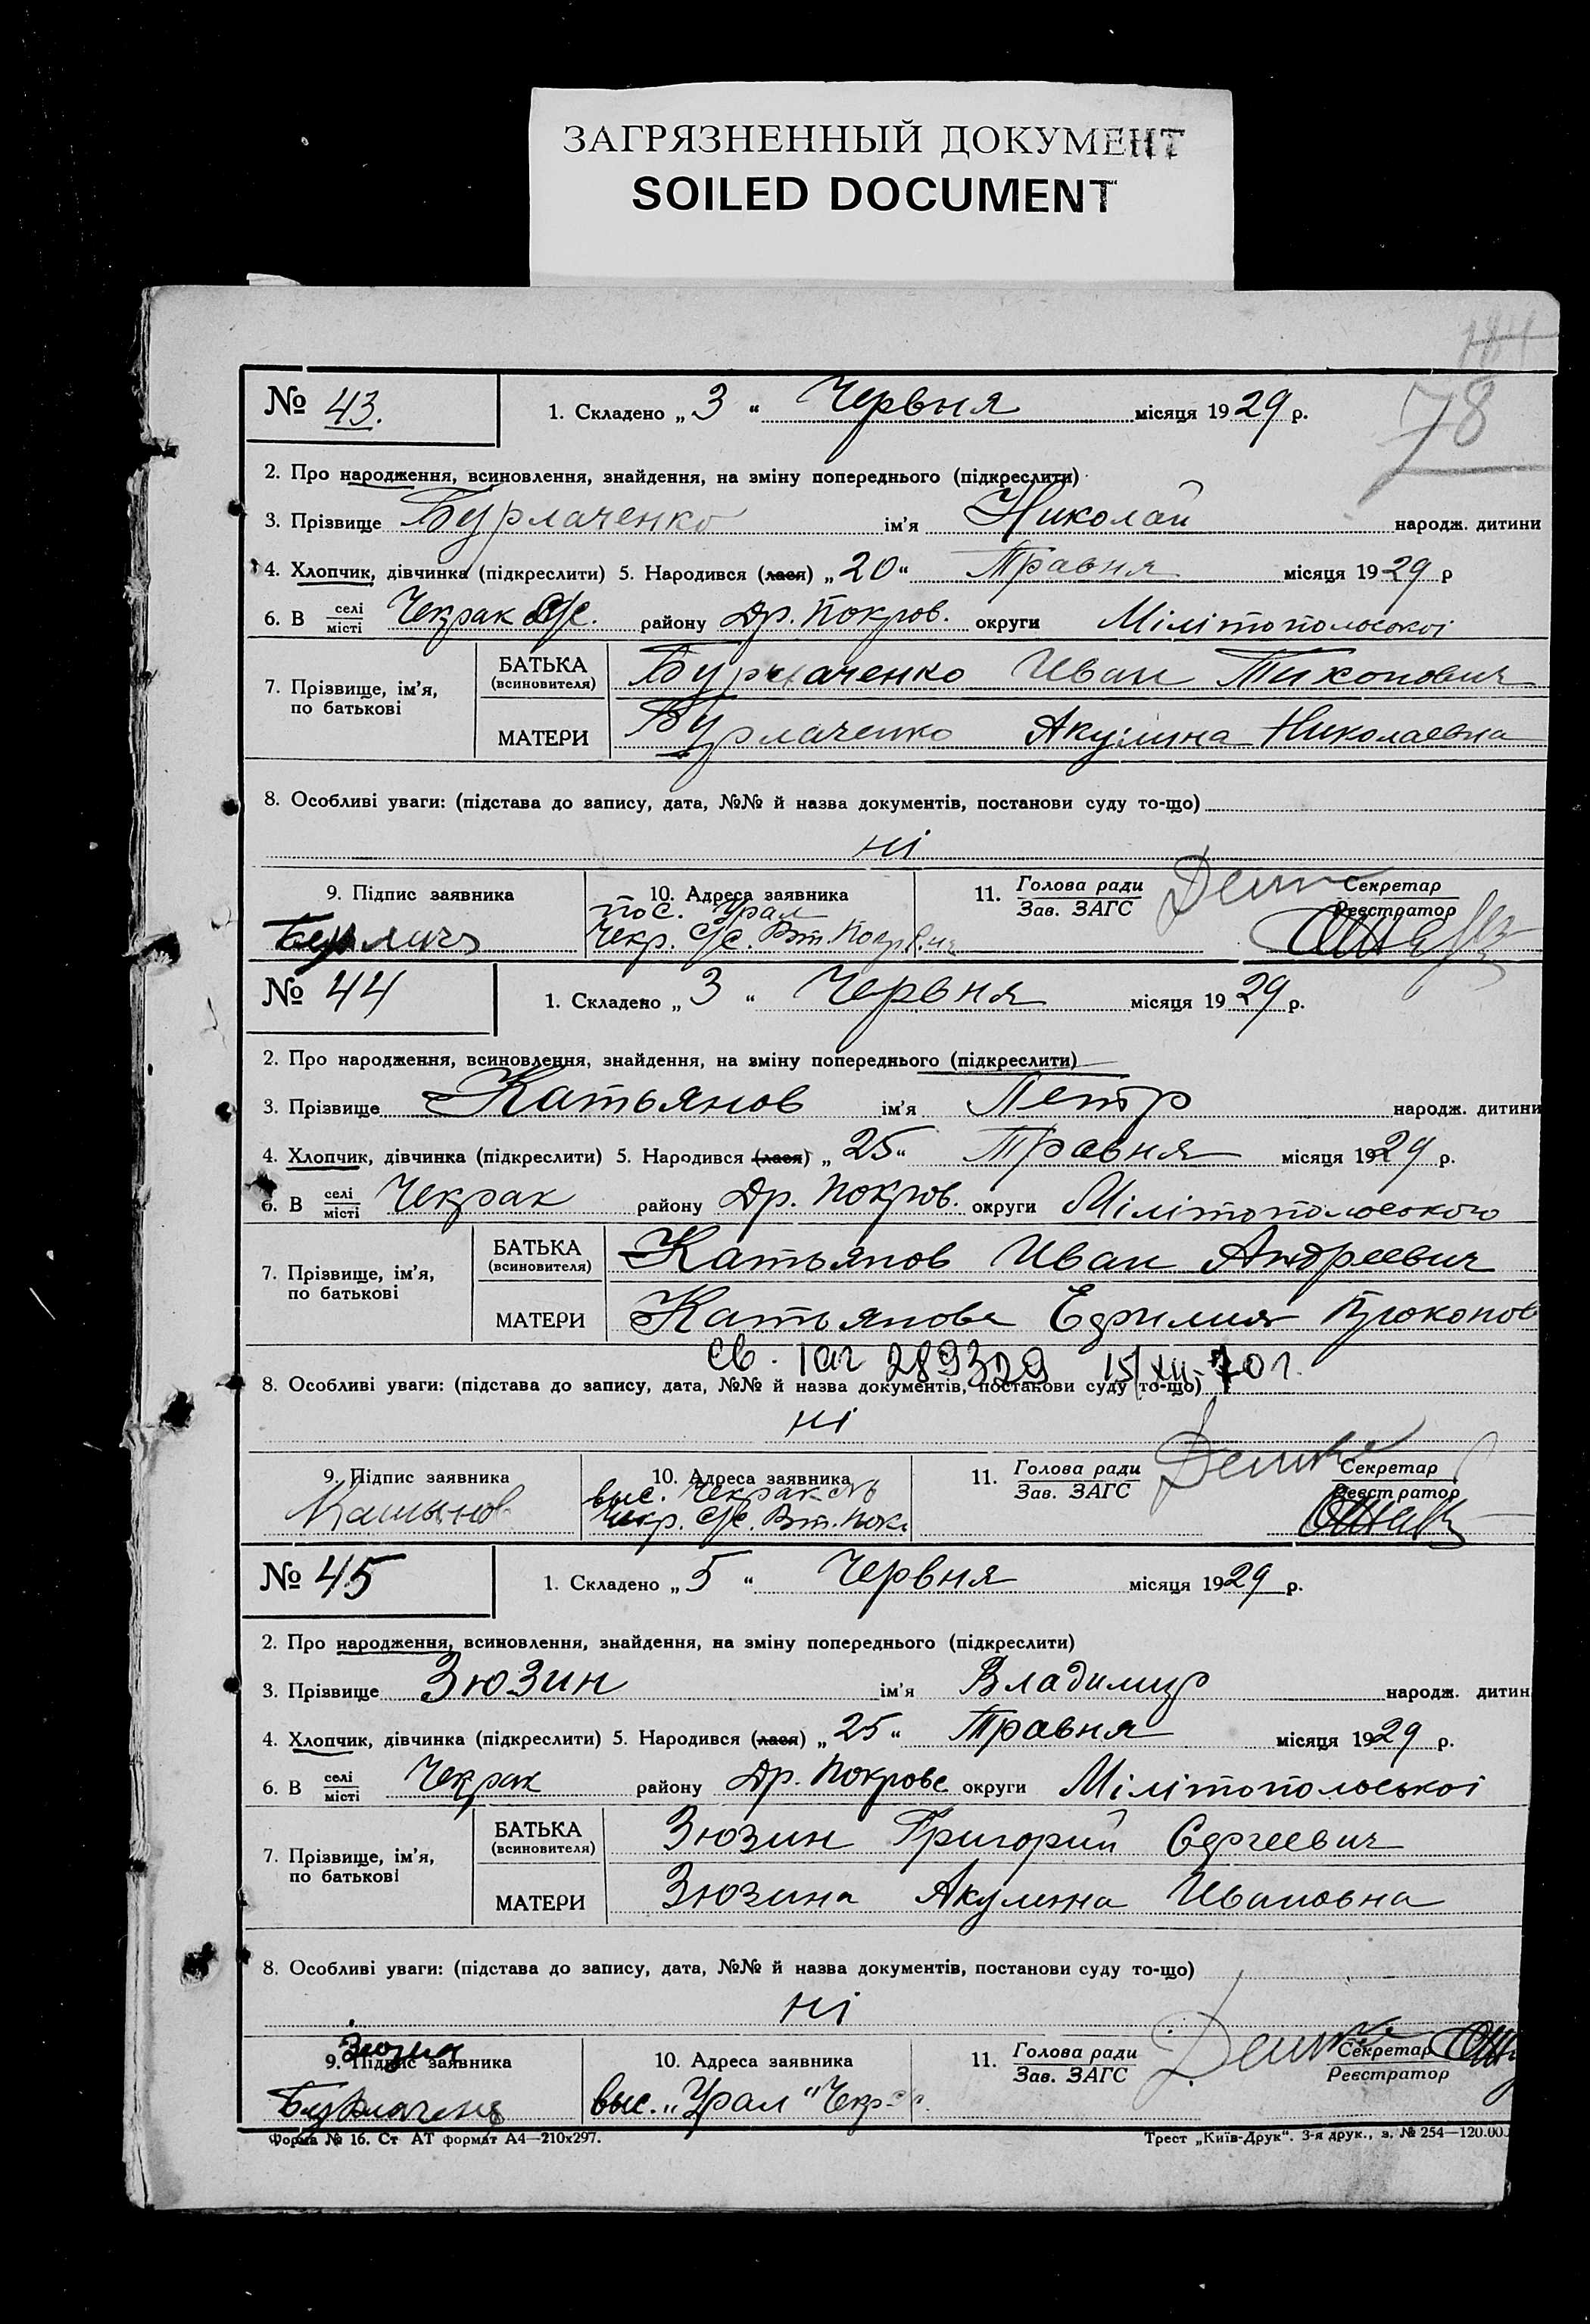 ЗАГРЯЗНЕННЫЙ ДОКУМЕНТ
SOILED DOCUMENT
184
78
№ 43. 1. Складено „3“ Червня місяця 1929 р.
2. Про народження, всиновлення, знайдення, на зміну попереднього (підкреслити)
3. Прізвище Бурлаченко ім'я Николай народж. дитини
4. Хлопчик, дівчинка (підкреслити) 5. Народився (лася) „20“ Травня місяця 1929 р
6. В селі місті Чекрак С/с. району Др. Покров. округи Мілітопольської
7. Прізвище, ім'я, по батькові
БАТЬКА (всиновителя) Бурлаченко Иван Тихонович
МАТЕРИ Бурлаченко Акулина Николаевна
8. Особливі уваги: (підстава до запису, дата, №№ й назва документів, постанови суду то-що)
ні
9. Підпис заявника 10. Адреса заявника 11. Голова ради Зав. ЗАГС Секретар Реєстратор
пос. Урал
Чекр. С/с. Вт.
№ 44 1. Складено „3“ Червня місяця 1929 р.
2. Про народження, всиновлення, знайдення, на зміну попереднього (підкреслити)
3. Прізвище Катьянов ім'я Петр народж. дитини
4. Хлопчик, дівчинка (підкреслити) 5. Народився (лася) „25“ Травня місяця 1929 р.
6. В селі місті Чекрак району Др. Покров. округи Мілітопольского
7. Прізвище, ім'я, по батькові
БАТЬКА (всиновителя) Катьянов Иван Андреевич
МАТЕРИ Катьянова Прокопов
св. 289329 15/XII-70г.
8. Особливі уваги: (підстава до запису, дата, №№ й назва документів, постанови суду то-що)
ні
9. Підпис заявника 10. Адреса заявника 11. Голова ради Зав. ЗАГС Секретар Реєстратор
Катьянов выс. Чекрак
Чекр. С/с. Вт. Пок.
№ 45 1. Складено „5“ Червня місяця 1929 р.
2. Про народження, всиновлення, знайдення, на зміну попереднього (підкреслити)
3. Прізвище Зюзин ім'я Владимир народж. дитин
4. Хлопчик, дівчинка (підкреслити) 5. Народився (лася) „25“ Травня місяця 1929 р.
6. В селі місті Чекрак району Др. Покровс округи Мілітопольської
7. Прізвище, ім'я, по батькові
БАТЬКА (всиновителя) Зюзин Григорий Сергеевич
МАТЕРИ Зюзина Акулина Ивановна
8. Особливі уваги: (підстава до запису, дата, №№ й назва документів, постанови суду то-що)
ні
9. Підпис заявника 10. Адреса заявника 11. Голова ради Зав. ЗАГС Секретар Реєстратор
выс. „Урал“
Форма № 16. Ст АТ формат А4—210х297. Трест „Київ-Друк“. 3-я друк., з. № 254—120.00